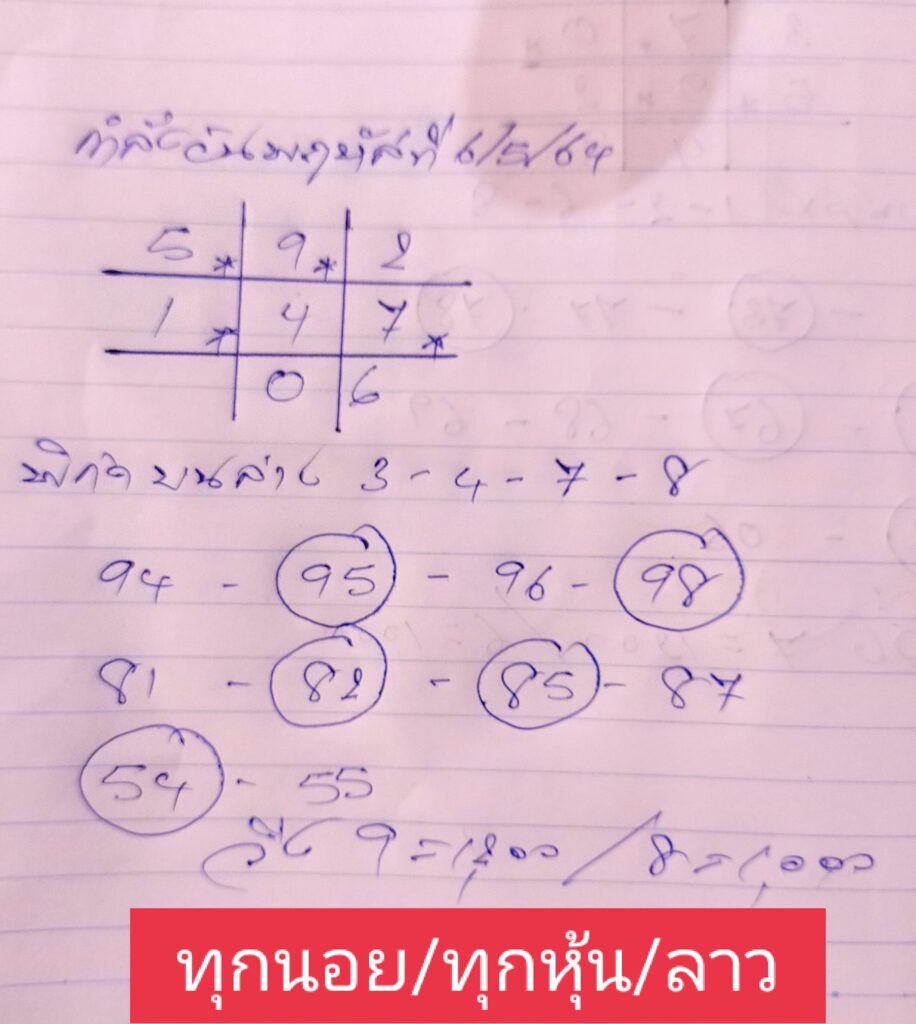 กำลังวันพฤหัสที่ 6/5/64
5* 9* 2
1* 4 7*
0 6
พิกัด บนล่าง 3 - 4 - 7 - 8
94 - 95 - 96 - 98
81 - 82 - 85 - 87
54 - 55
วิ่ง 9 = / 8 = 1,000
ทุกนอย/ทุกหุ้น/ลาว